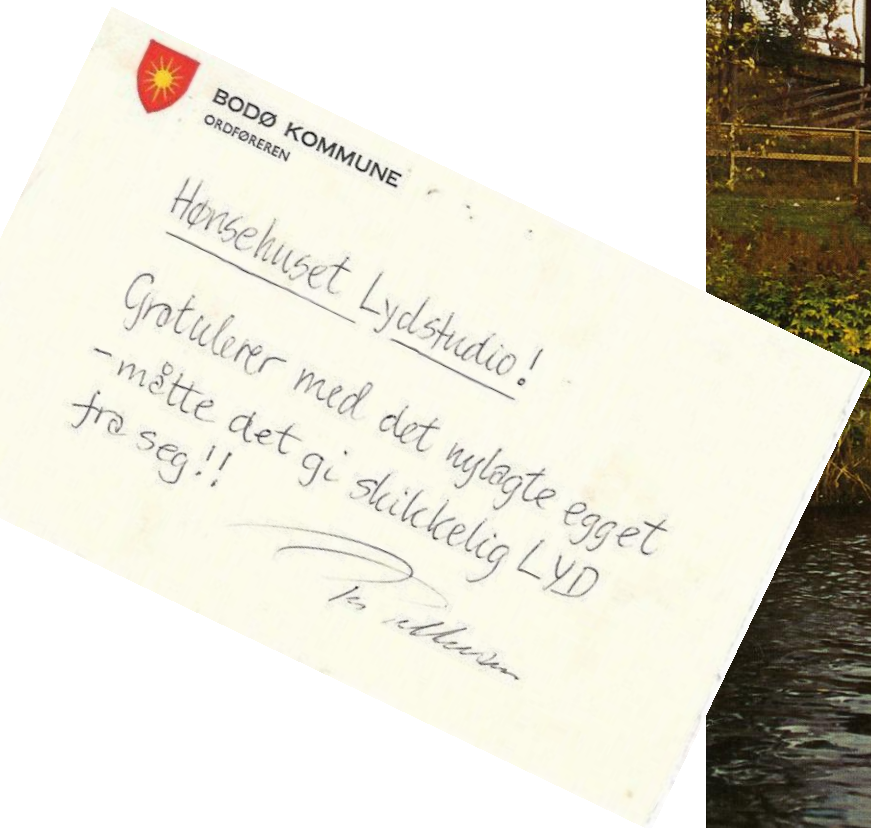 BODØ KOMMUNE
ORDFØREREN
Hønsehuset Lydstudio!
Gratulerer med det nylagte egget
- måtte det gi skikkelig LYD
fra seg!!